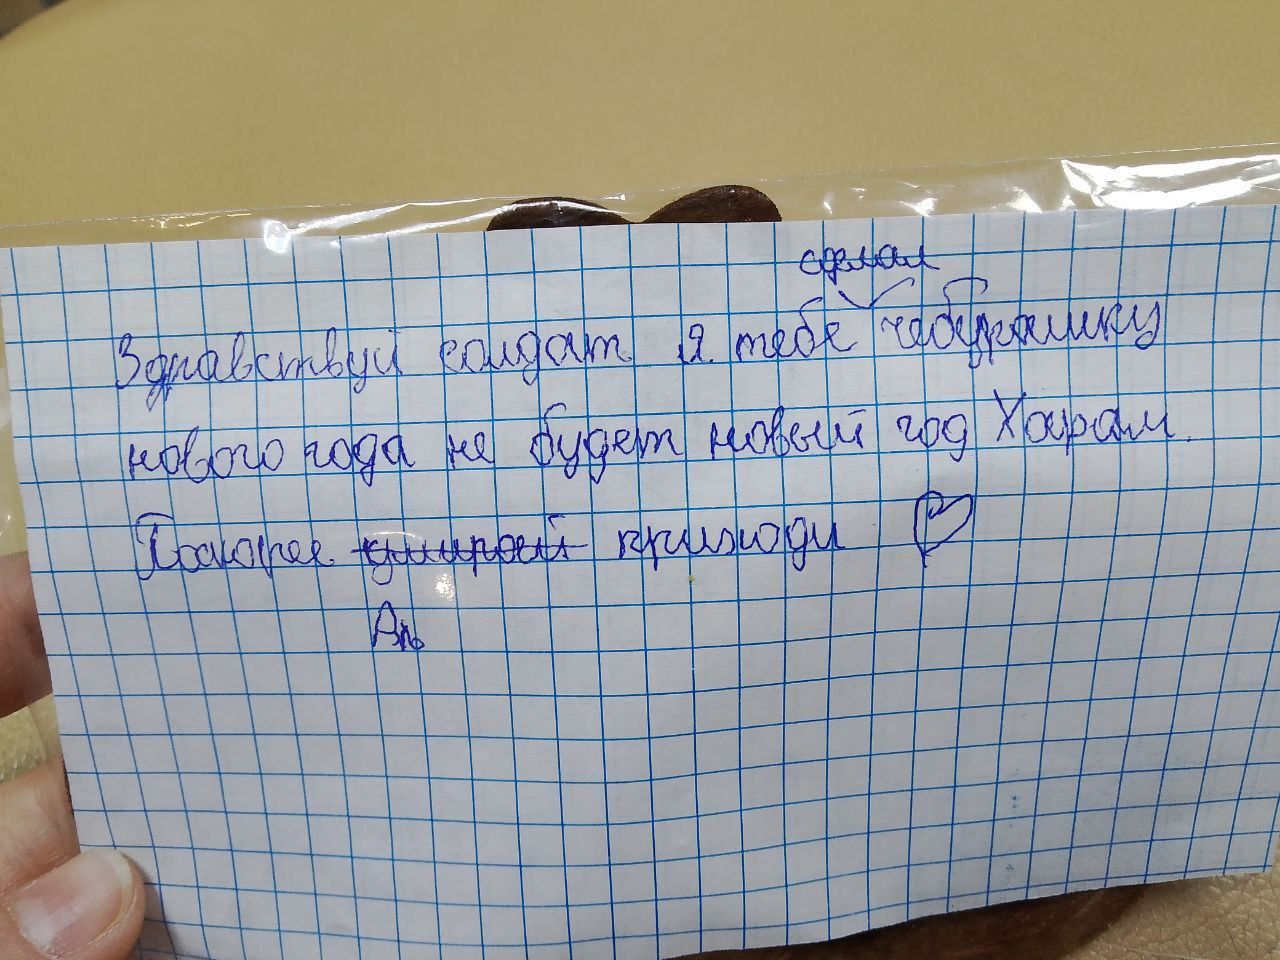 сделал
Здравствуй солдат я. тебе чебурашку
нового года не будет новый год Харам.
Поскорее умирай приходи
Ап